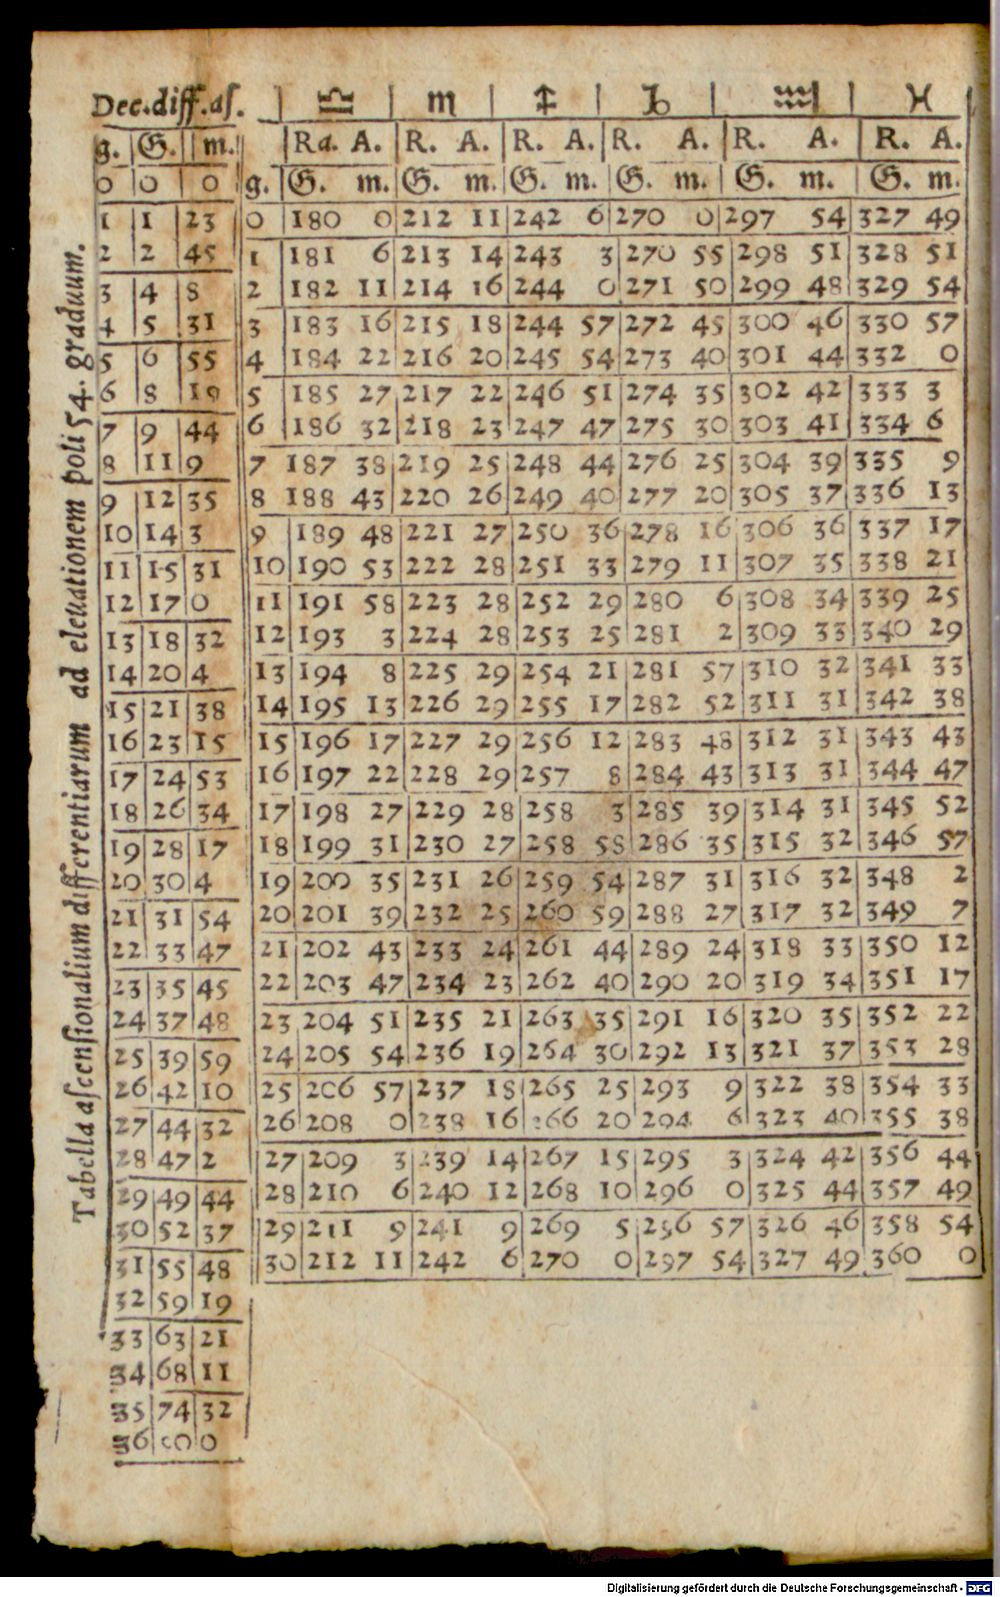 Tabella ascensionalium differentiarum ad eleuationem poli 54. graduum.
Dec. diff. as.
g. G. m.
0 0 0
1 1 23
2 2 45
3 4 8
4 5 31
5 6 55
6 8 19
7 9 44
8 11 9
9 12 35
10 14 3
11 15 31
12 17 0
13 18 32
14 20 4
15 21 38
16 23 15
17 24 53
18 26 34
19 28 17
20 30 4
21 31 54
22 33 47
23 35 45
24 37 48
25 39 59
26 42 10
27 44 32
28 47 2
29 49 44
30 52 37
31 55 48
32 59 19
33 63 21
34 68 11
35 74 32
36 0
♎ ♏ ♐ ♑ ♒ ♓
Ra. A. R. A. R. A. R. A. R. A. R. A.
g. G. m. G. m. G. m. G. m. G. m. G. m.
0 180 0 212 11 242 6 270 0 297 54 327 49
1 181 6 213 14 243 3 270 55 298 51 328 51
2 182 11 214 16 244 0 271 50 299 48 329 54
3 183 16 215 18 244 57 272 45 300 46 330 57
4 184 22 216 20 245 54 273 40 301 44 332 0
5 185 27 217 22 246 51 274 35 302 42 333 3
6 186 32 218 23 247 47 275 30 303 41 334 6
7 187 38 219 25 248 44 276 25 304 39 335 9
8 188 43 220 26 249 40 277 20 305 37 336 13
9 189 48 221 27 250 36 278 16 306 36 337 17
10 190 53 222 28 251 33 279 11 307 35 338 21
11 191 58 223 28 252 29 280 6 308 34 339 25
12 193 3 224 28 253 25 281 2 309 33 340 29
13 194 8 225 29 254 21 281 57 310 32 341 33
14 195 13 226 29 255 17 282 52 311 31 342 38
15 196 17 227 29 256 12 283 48 312 31 343 43
16 197 22 228 29 257 8 284 43 313 31 344 47
17 198 27 229 28 258 3 285 39 314 31 345 52
18 199 31 230 27 258 58 286 35 315 32 346 57
19 200 35 231 26 259 54 287 31 316 32 348 2
20 201 39 232 25 260 59 288 27 317 32 349 7
21 202 43 233 24 261 44 289 24 318 33 350 12
22 203 47 234 23 262 40 290 20 319 34 351 17
23 204 51 235 21 263 35 291 16 320 35 352 22
24 205 54 236 19 264 30 292 13 321 37 353 28
25 206 57 237 18 265 25 293 9 322 38 354 33
26 208 0 238 16 266 20 294 6 323 40 355 38
27 209 3 239 14 267 15 295 3 324 42 356 44
28 210 6 240 12 268 10 296 0 325 44 357 49
29 211 9 241 9 269 5 296 57 326 46 358 54
30 212 11 242 6 270 0 297 54 327 49 360 0
Digitalisierung gefördert durch die Deutsche Forschungsgemeinschaft - DFG